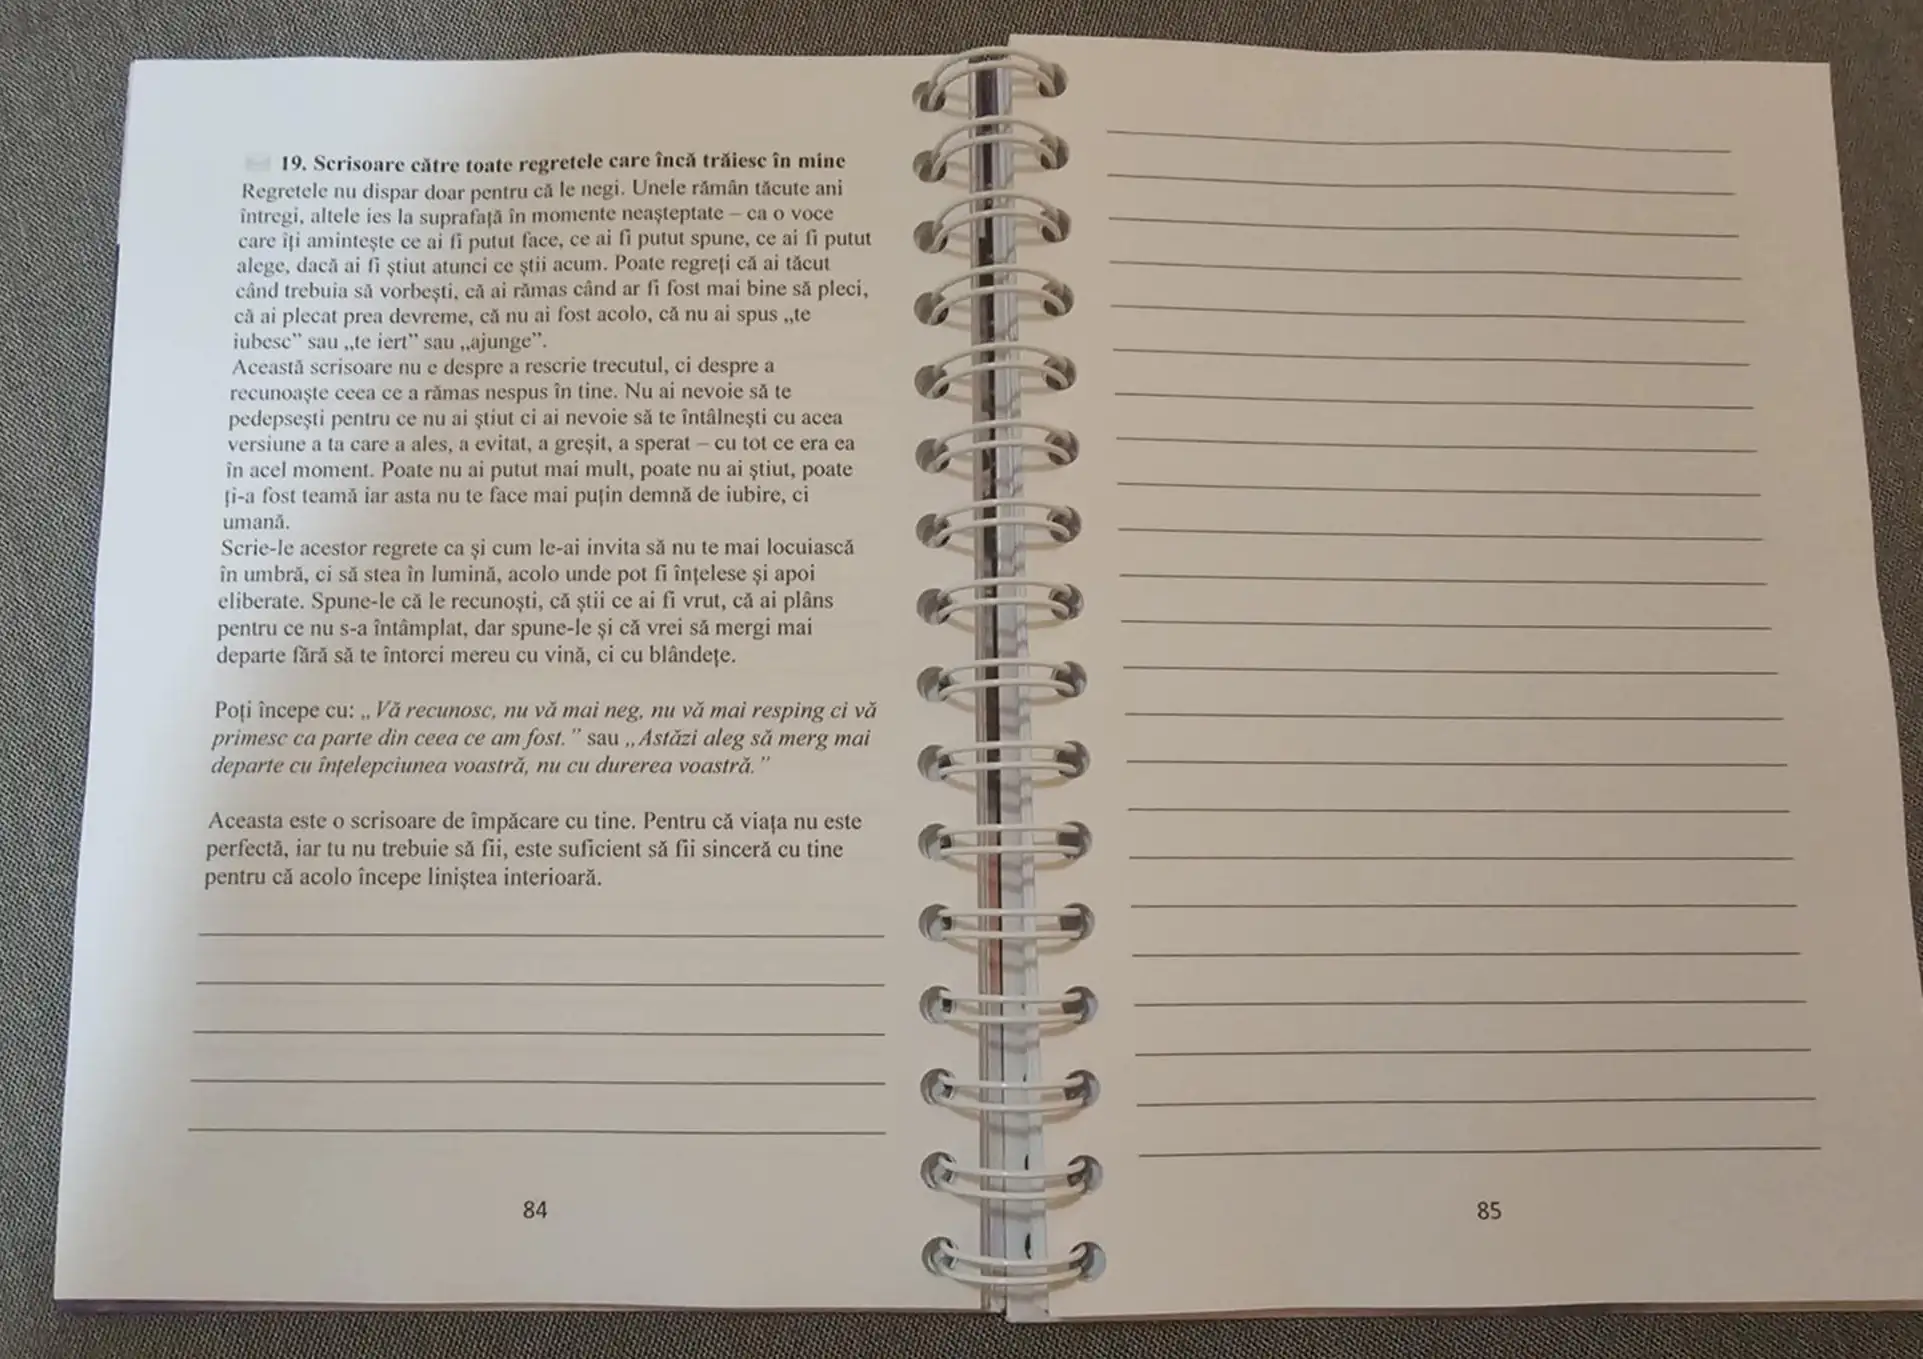 19. Scrisoare către toate regretele care încă trăiesc în mine
Regretele nu dispar doar pentru că le negi. Unele rămân tăcute ani
întregi, altele ies la suprafață în momente neașteptate – ca o voce
care îți amintește ce ai fi putut face, ce ai fi putut spune, ce ai fi putut
alege, dacă ai fi știut atunci ce știi acum. Poate regreți că ai tăcut
când trebuia să vorbești, că ai rămas când ar fi fost mai bine să pleci,
că ai plecat prea devreme, că nu ai fost acolo, că nu ai spus „te
iubesc” sau „te iert” sau „ajunge”.
Această scrisoare nu e despre a rescrie trecutul, ci despre a
recunoaște ceea ce a rămas nespus în tine. Nu ai nevoie să te
pedepsești pentru ce nu ai știut ci ai nevoie să te întâlnești cu acea
versiune a ta care a ales, a evitat, a greșit, a sperat – cu tot ce era ea
în acel moment. Poate nu ai putut mai mult, poate nu ai știut, poate
ți-a fost teamă iar asta nu te face mai puțin demnă de iubire, ci
umană.
Scrie-le acestor regrete ca și cum le-ai invita să nu te mai locuiască
în umbră, ci să stea în lumină, acolo unde pot fi înțelese și apoi
eliberate. Spune-le că le recunoști, că știi ce ai fi vrut, că ai plâns
pentru ce nu s-a întâmplat, dar spune-le și că vrei să mergi mai
departe fără să te întorci mereu cu vină, ci cu blândețe.
Poți începe cu: „Vă recunosc, nu vă mai neg, nu vă mai resping ci vă
primesc ca parte din ceea ce am fost.” sau „Astăzi aleg să merg mai
departe cu înțelepciunea voastră, nu cu durerea voastră.”
Aceasta este o scrisoare de împăcare cu tine. Pentru că viața nu este
perfectă, iar tu nu trebuie să fii, este suficient să fii sinceră cu tine
pentru că acolo începe liniștea interioară.
84
85